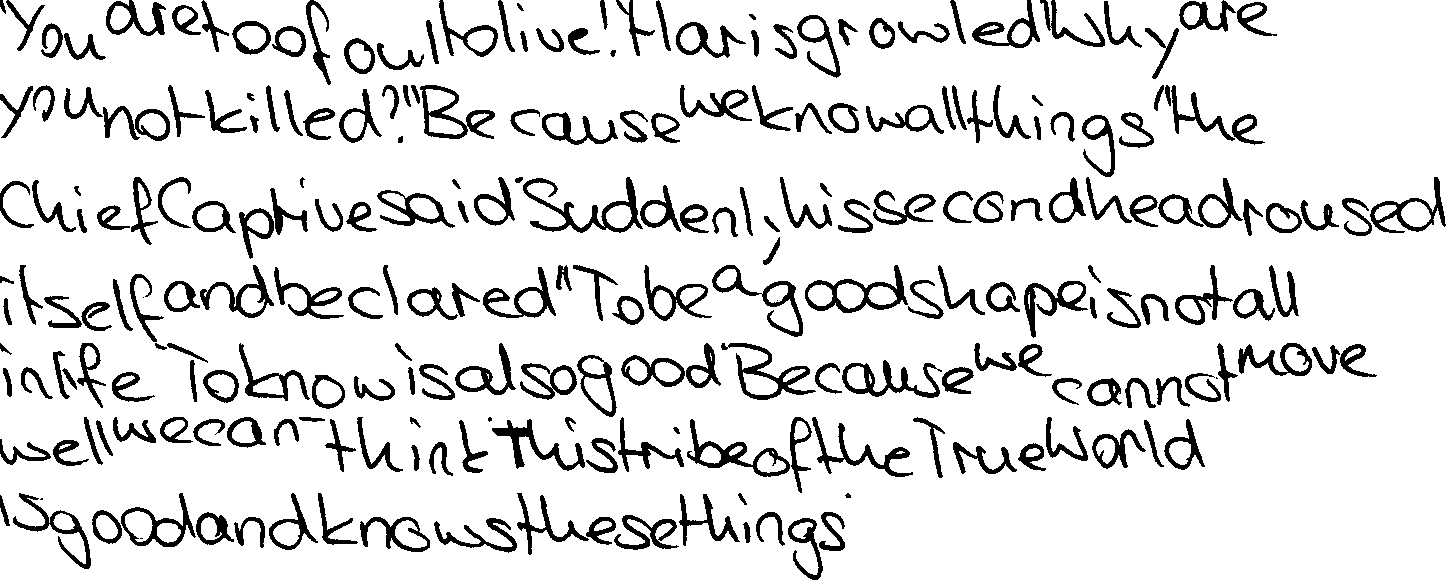 "You are too foul to live!" Haris growled "Why are
you not killed?" "Because we know all things" the
Chief Captive said Suddenly, his second head roused
itself and declared "To be a good shape is not all
in life To know is also good Because we cannot move
well we can think This tribe of the True World
is good and knows these things